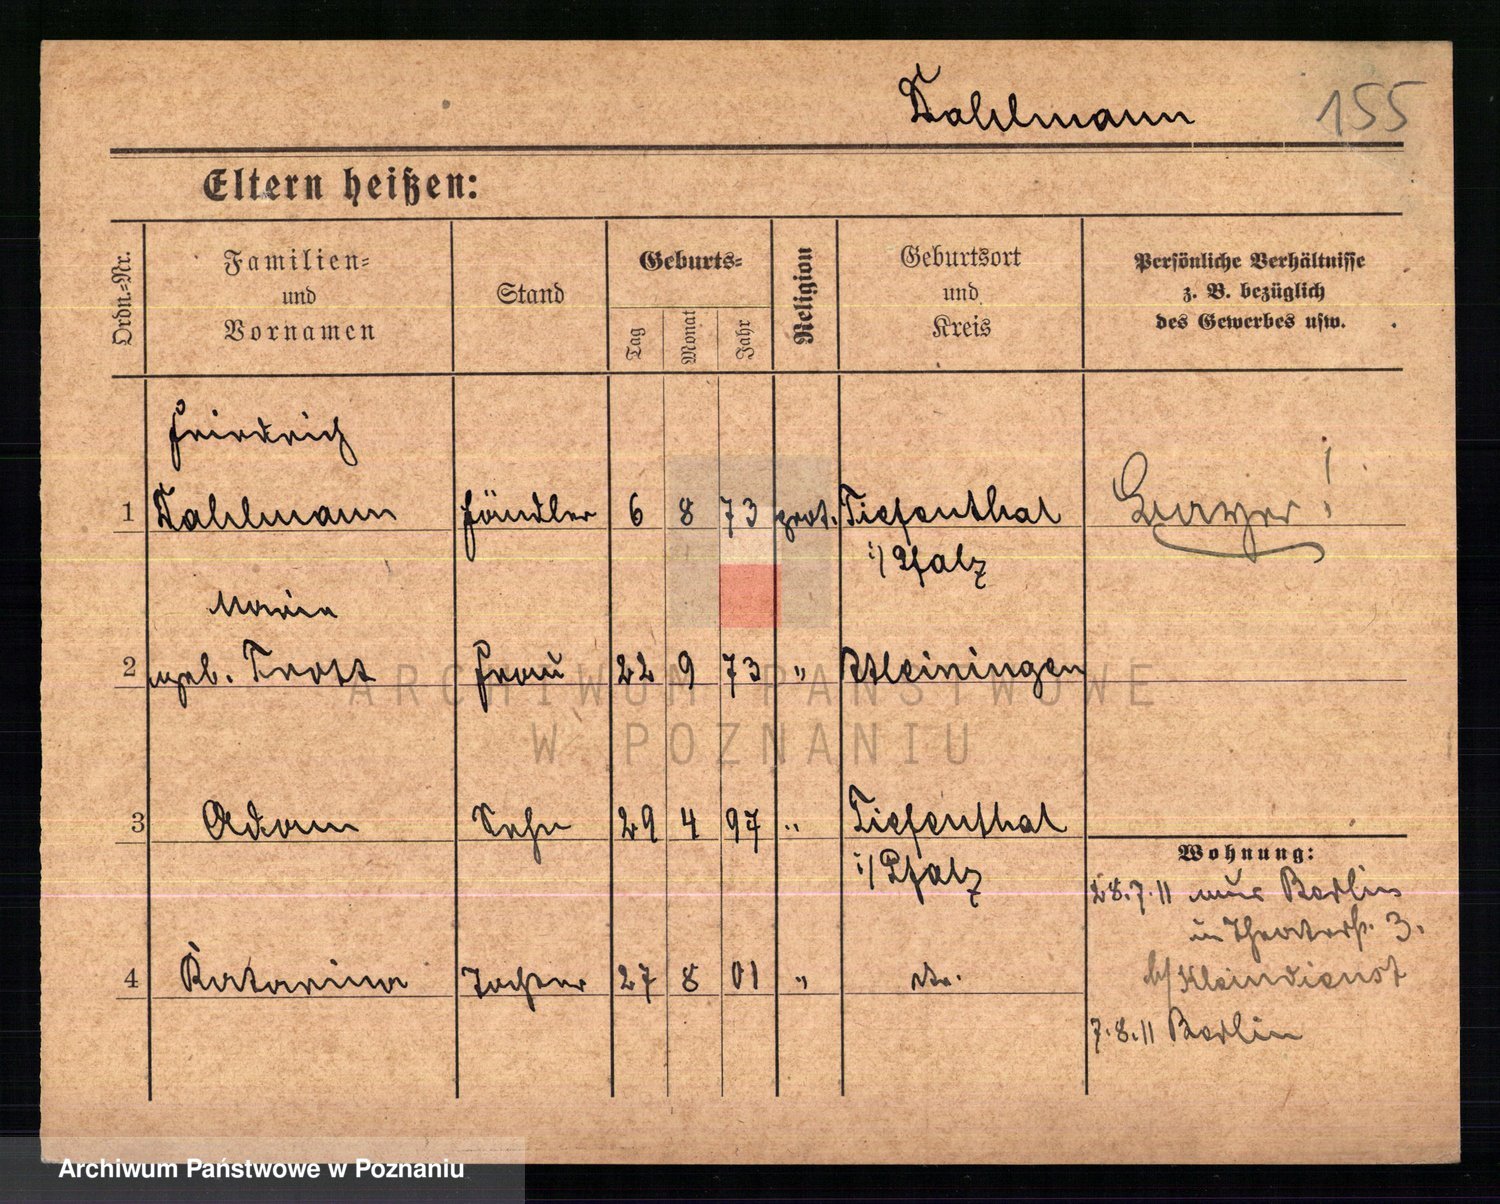 Dahlmann 155
Eltern heißen:
Ordn.-Nr.
Familien-
und
Vornamen
Stand
Geburts-
Tag
Monat
Jahr
Religion
Geburtsort
und
Kreis
Persönliche Verhältnisse
z. B. bezüglich
des Gewerbes usw.
Friedrich
1 Dahlmann Händler 6 8 73 prot. Tiefenthal
i/ Pfalz
Bayer!
Maria
2 geb. Trott Frau 22 9 73 " Altleiningen
3 Adam Sohn 29 4 97 " Tiefenthal
i/ Pfalz
4 Katarina Tochter 27 8 01 " do.
Wohnung:
28.7.11 aus Berlin
in Theaterstr. 3.
b/ Kleindienst
7.8.11 Berlin
ARCHIWUM PAŃSTWOWE
W POZNANIU
Archiwum Państwowe w Poznaniu